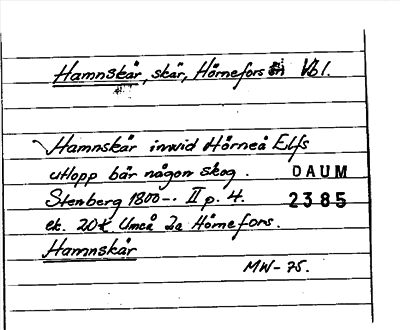 Hamnskär, skär, Hörnefors sn Vbl.
Hamnskär invid Hörneå Elfs
utlopp bär någon skog. DAUM
Stenberg 1800-. II p. 4. 2385
ek. 20k Umeå 2a Hörnefors.
Hamnskär
MW-75.